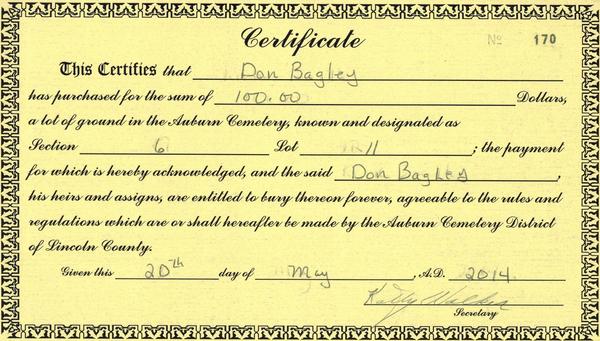 Certificate
No 170
This Certifies that Don Bagley
has purchased for the sum of 100.00 Dollars,
a lot of ground in the Auburn Cemetery, known and designated as
Section 6 Lot 11 ; the payment
for which is hereby acknowledged, and the said Don Bagley ,
his heirs and assigns, are entitled to bury thereon forever, agreeable to the rules and
regulations which are or shall hereafter be made by the Auburn Cemetery District
of Lincoln County.
Given this 20th day of May , A.D. 2014
Kitty Walker
Secretary